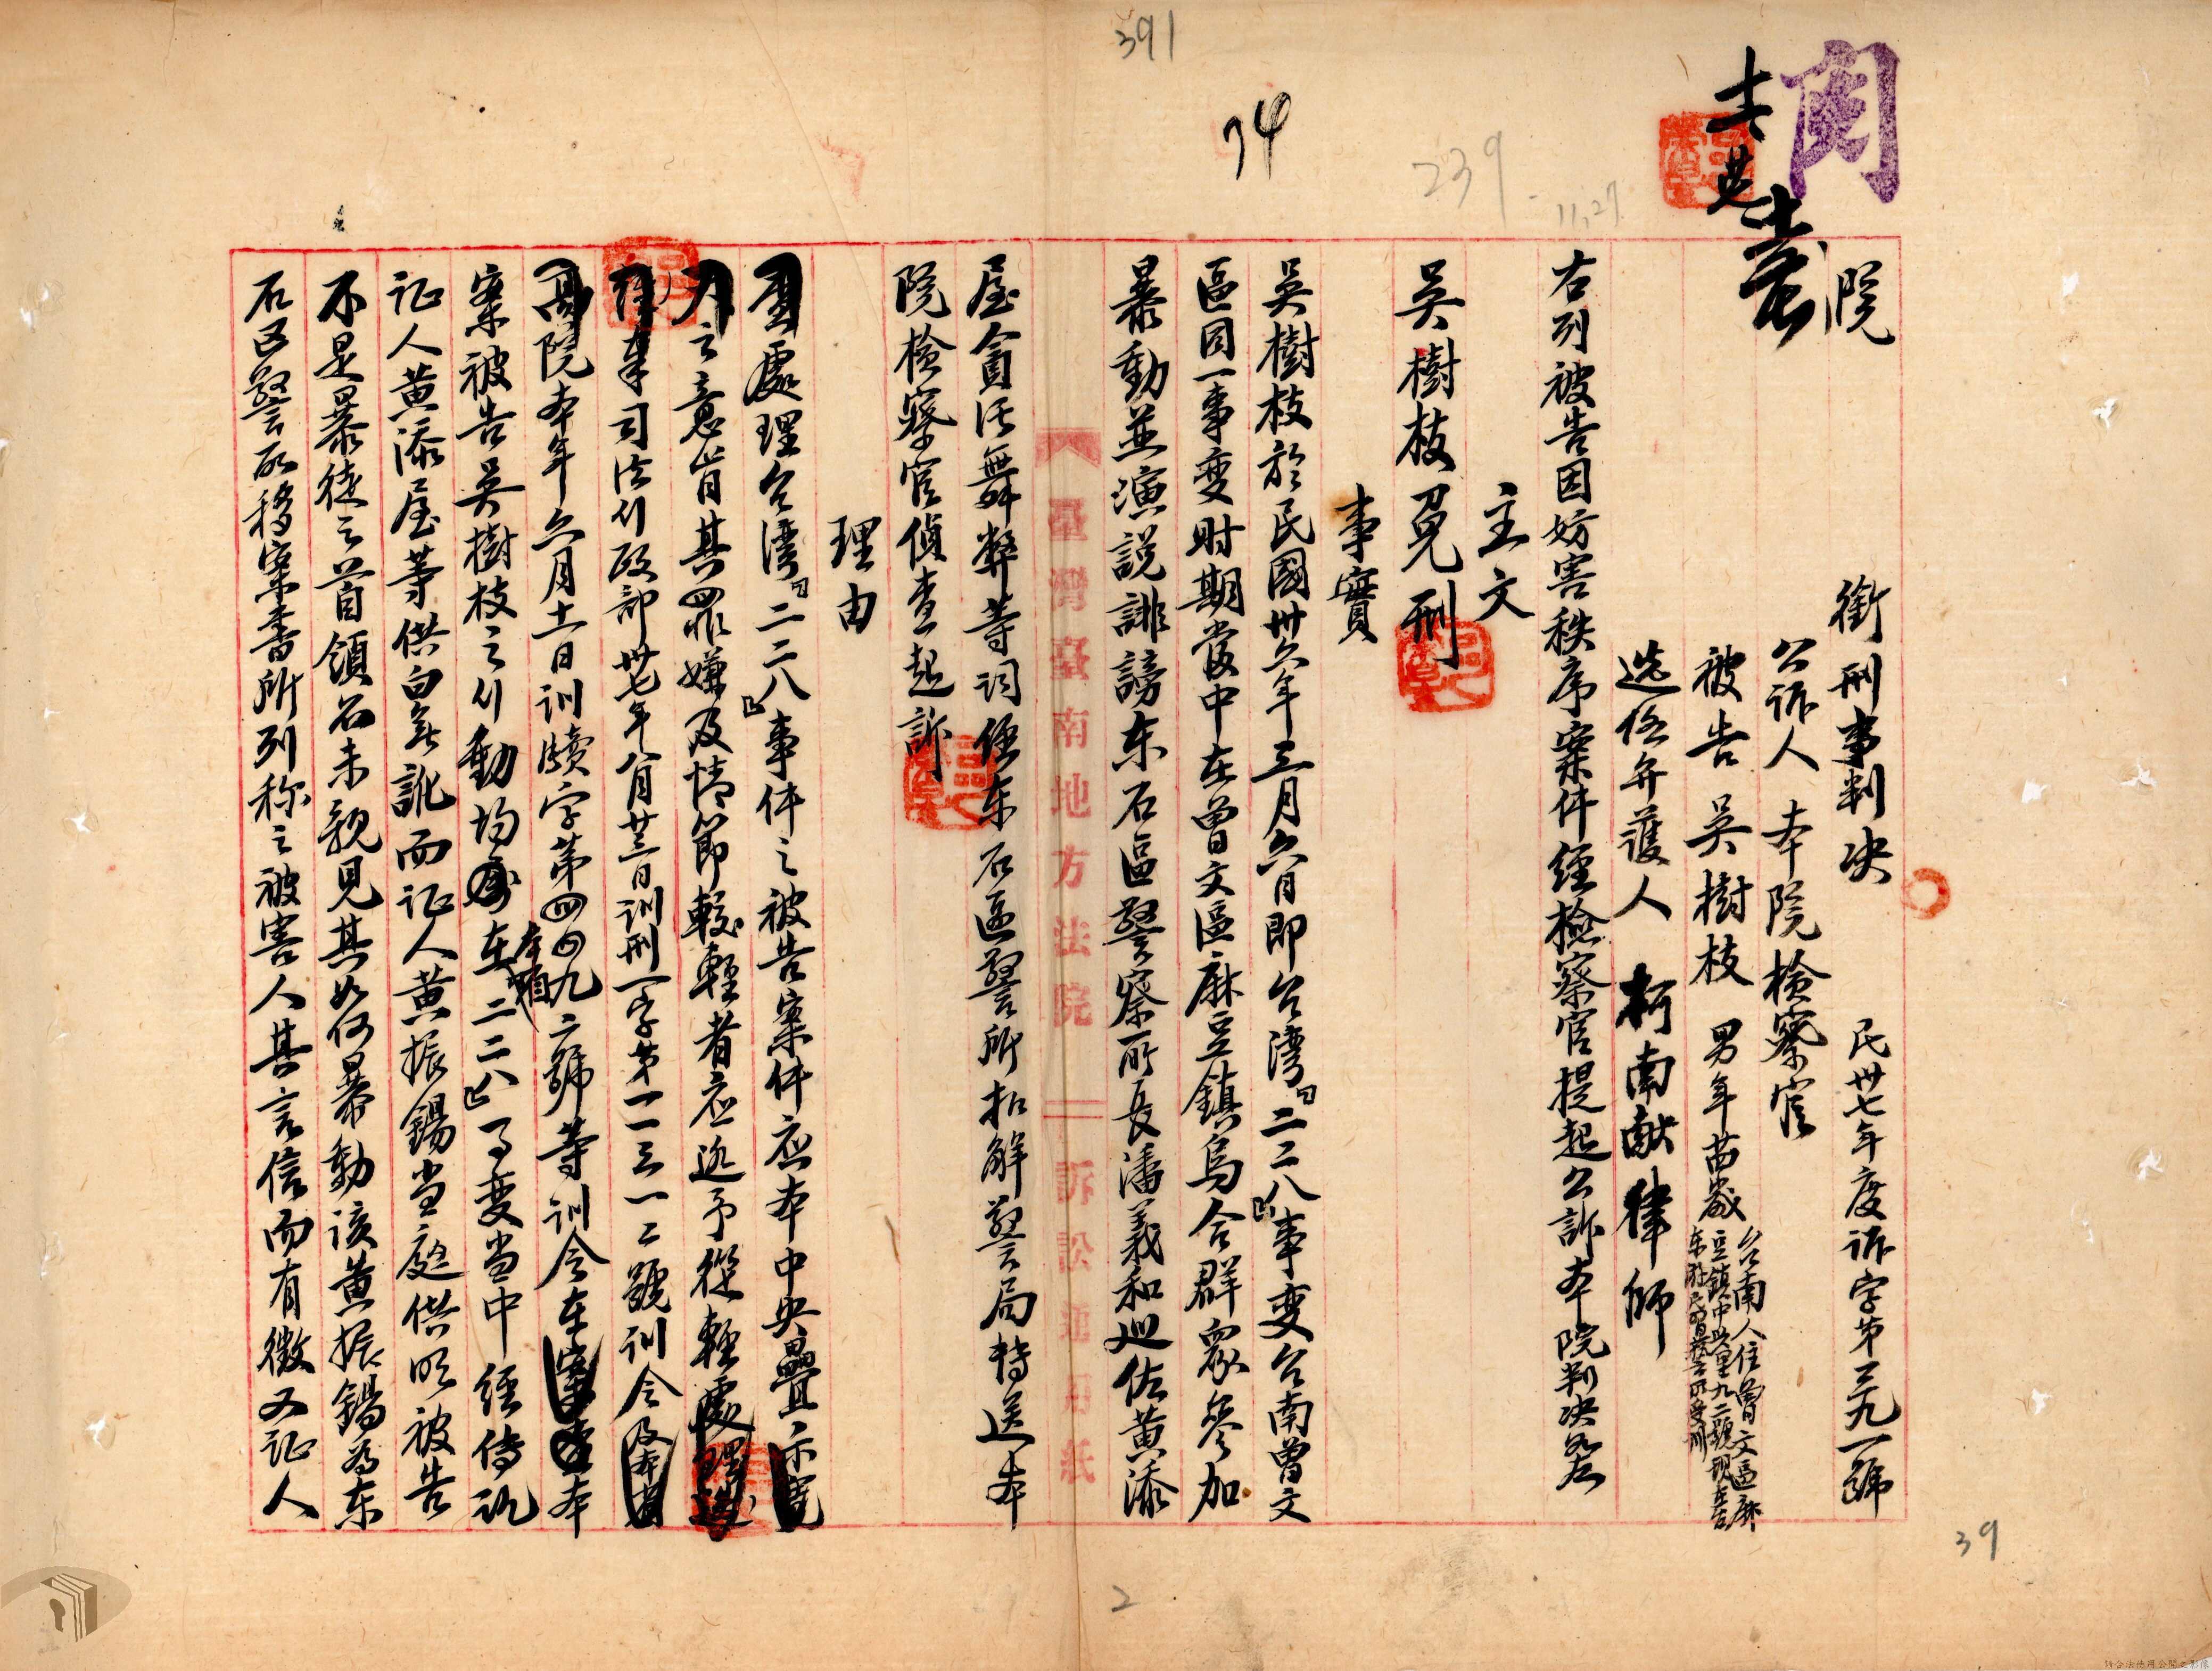 391
74
239
11,27
閱
院
銜刑事判決 民卅七年度訴字第三九一號
公訴人 本院檢察官
被告 吳樹枝 男年 歲 台南人住曾文區麻
豆鎮中 里九二號現
选任弁護人 柯南献律師
右列被告因妨害秩序案件經檢察官提起公訴本院判决如左
主文
吳樹枝免刑
事實
吳樹枝於民國卅六年三月六日即台湾「二二八」事变台南曾文
區同一事变时期當中在曾文區麻豆鎮烏合群眾參加
暴動並演説誹謗东石區警察所長潘義和巡佐黄添
臺灣臺南地方法院 訴訟 用紙
屋貪污舞弊等词經东石區警所扣解警局轉送本
院檢察官偵查起訴
理由
處理台湾「二二八」事件之被告案件应本中央
之意旨其罪嫌及情節較輕者应迅予從輕處理
司法行政部卅七年八月廿三日训刑一字第一一三一二號训令
高院本年六月十一日训牘字第四四九六號等训令在 本
案被告吳樹枝之行動均 在本省「二二八」事变當中經傳訊
证人黄添屋等供白無訛而证人黄振錫當庭供明被告
不是暴徒之首領名未親見其如何暴動该黄振錫為东
石区警所移案書所列称之被害人其言信而有徵又证人
39
2
請合法使用公開之影像